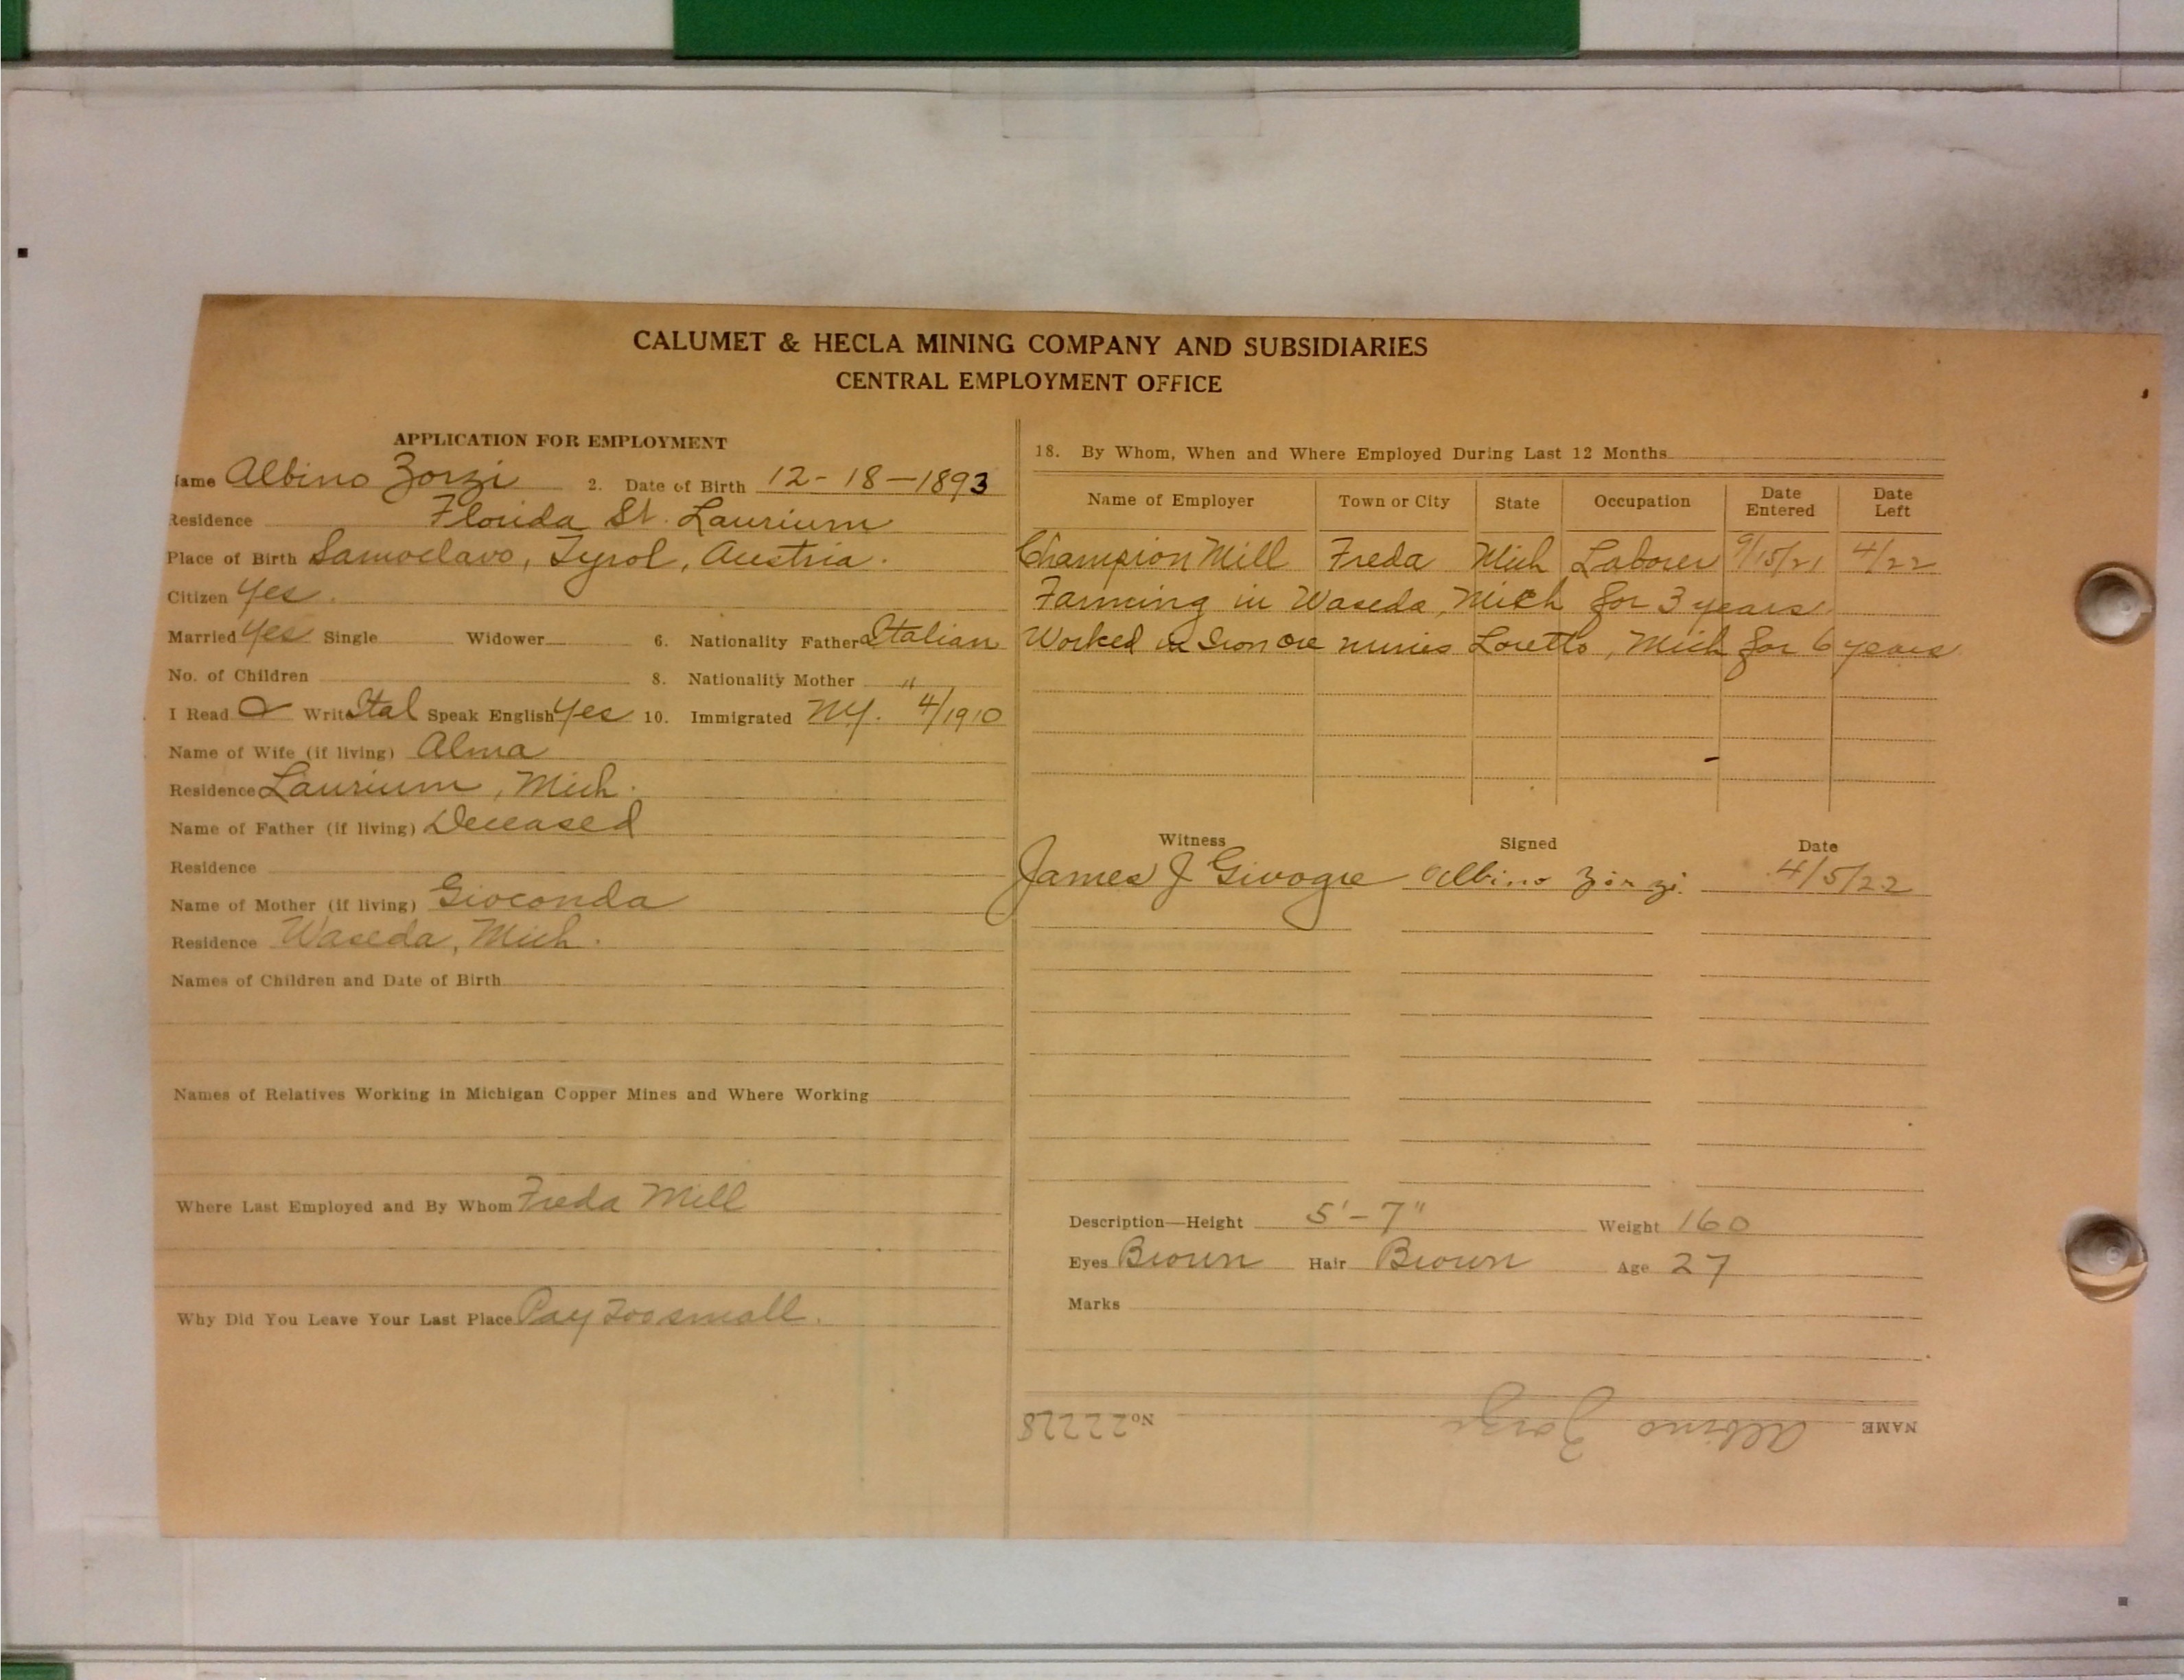 CALUMET & HECLA MINING COMPANY AND SUBSIDIARIES
CENTRAL EMPLOYMENT OFFICE
APPLICATION FOR EMPLOYMENT
ame Albino Zorzi 2. Date of Birth 12-18-1893
Residence Florida St. Laurium
Place of Birth Samoclavo, Tyrol, Austria.
Citizen Yes.
Married Yes Single Widower 6. Nationality Father Italian
No. of Children 8. Nationality Mother "
I Read Write Ital Speak English Yes 10. Immigrated NY. 4/1910
Name of Wife (if living) Alma
Residence Laurium, Mich.
Name of Father (if living) Deceased
Residence
Name of Mother (if living) Gioconda
Residence Waseda, Mich.
Names of Children and Date of Birth
Names of Relatives Working in Michigan Copper Mines and Where Working
Where Last Employed and By Whom Freda Mill
Why Did You Leave Your Last Place Pay too small.
18. By Whom, When and Where Employed During Last 12 Months
Name of Employer Town or City State Occupation Date Entered Date Left
Champion Mill Freda Mich Laborer 9/15/21 4/22
Farming in Waseda, Mich for 3 years.
Worked in Iron ore mines Loretto, Mich for 6 years
Witness Signed Date
James J Albino Zorzi. 4/5/22
Description—Height 5'-7" Weight 160
Eyes Brown Hair Brown Age 27
Marks
NAME Albino Zorzi No 22228